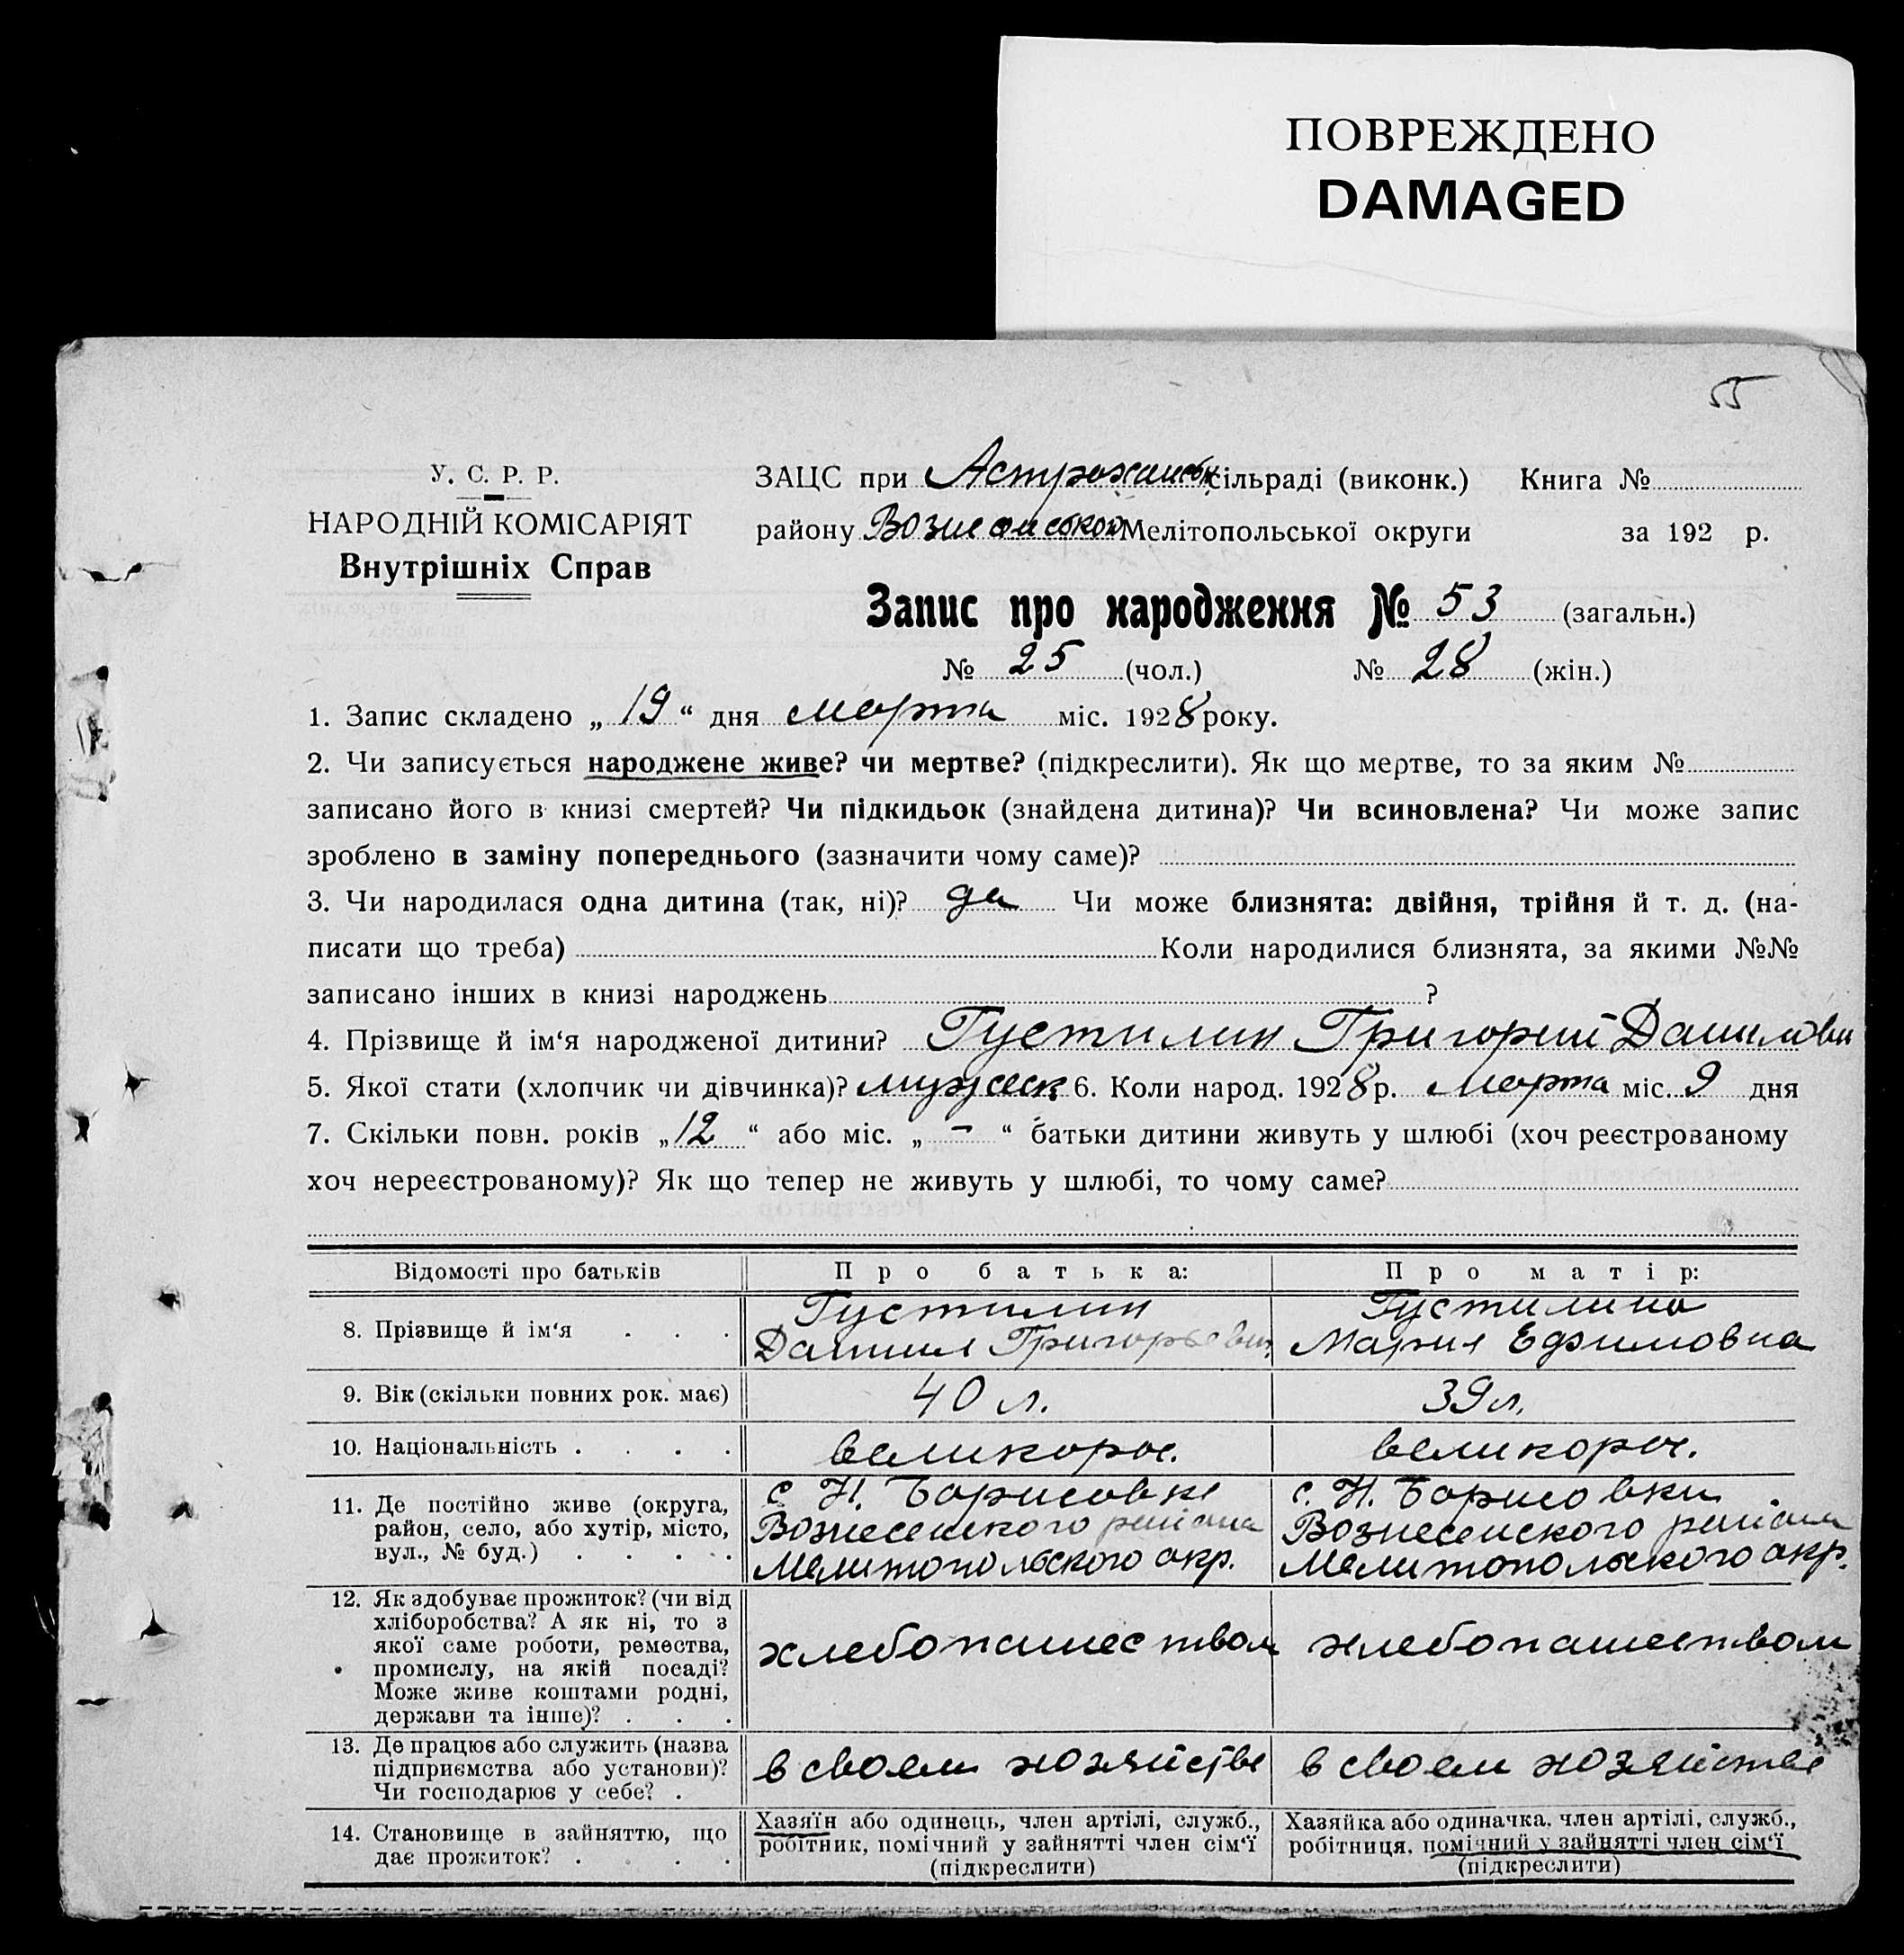 ПОВРЕЖДЕНО
DAMAGED
55
У. С. Р. Р.
НАРОДНІЙ КОМІСАРІЯТ
Внутрішніх Справ
ЗАЦС при Астраханськ сільраді (виконк.) Книга №
району Мелітопольської округи за 192 р.
Запис про народження № 53 (загальн.)
№ 25 (чол.) № 28 (жін.)
1. Запис складено „ 19 “ дня марта міс. 1928 року.
2. Чи записується народжене живе? чи мертве? (підкреслити). Як що мертве, то за яким №
записано його в книзі смертей? Чи підкидьок (знайдена дитина)? Чи всиновлена? Чи може запис
зроблено в заміну попереднього (зазначити чому саме)?
3. Чи народилася одна дитина (так, ні)? да Чи може близнята: двійня, трійня й т. д. (на-
писати що треба) Коли народилися близнята, за якими №№
записано інших в книзі народжень ?
4. Прізвище й ім‘я народженої дитини? Густилин Григорий
5. Якої стати (хлопчик чи дівчинка)? мужеск. 6. Коли народ. 1928 р. марта міс. 9 дня
7. Скільки повн. років „ 12 “ або міс. „ — “ батьки дитини живуть у шлюбі (хоч реєстрованому
хоч нереєстрованому)? Як що тепер не живуть у шлюбі, то чому саме?
Відомості про батьків Про батька: Про матір:
8. Прізвище й ім‘я . . .
Густилин
Даниил Григорьевич
Густилина
Мария Ефимовна
9. Вік (скільки повних рок. має) 40 л. 39 л.
10. Національність . . . . великорос. великорос.
11. Де постійно живе (округа,
район, село, або хутір, місто,
вул., № буд.) . . . .
с. Н. Борисовке
Вознесенского района
Мелитопольского окр.
с. Н. Борисовки
Вознесенского района
Мелитопольского окр.
12. Як здобуває прожиток? (чи від
хліборобства? А як ні, то з
якої саме роботи, ремества,
промислу, на якій посаді?
Може живе коштами родні,
держави та інше)? . . .
хлебопашеством
хлебопашеством
13. Де працює або служить (назва
підприємства або установи)?
Чи господарює у себе? .
в своем хозяйстве
в своем хозяйстве
14. Становище в зайняттю, що
дає прожиток? . . . .
Хазяїн або одинець, член артілі, служб.,
робітник, помічний у зайнятті член сім‘ї
(підкреслити)
Хазяйка або одиначка, член артілі, служб.,
робітниця, помічний у зайнятті член сім‘ї
(підкреслити)